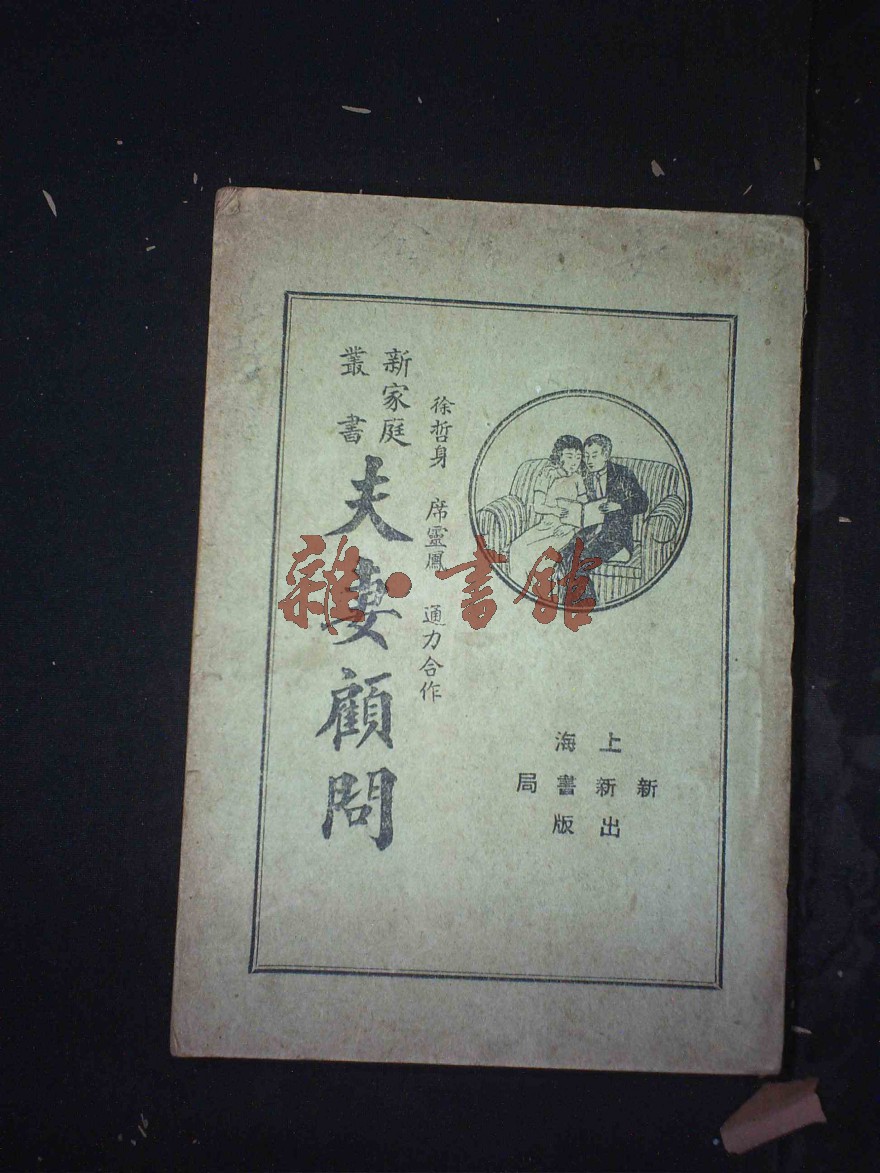 上海
新新書局
出版
徐哲身 席靈鳳 通力合作
新家庭
叢書
夫妻顧問
雜·書館